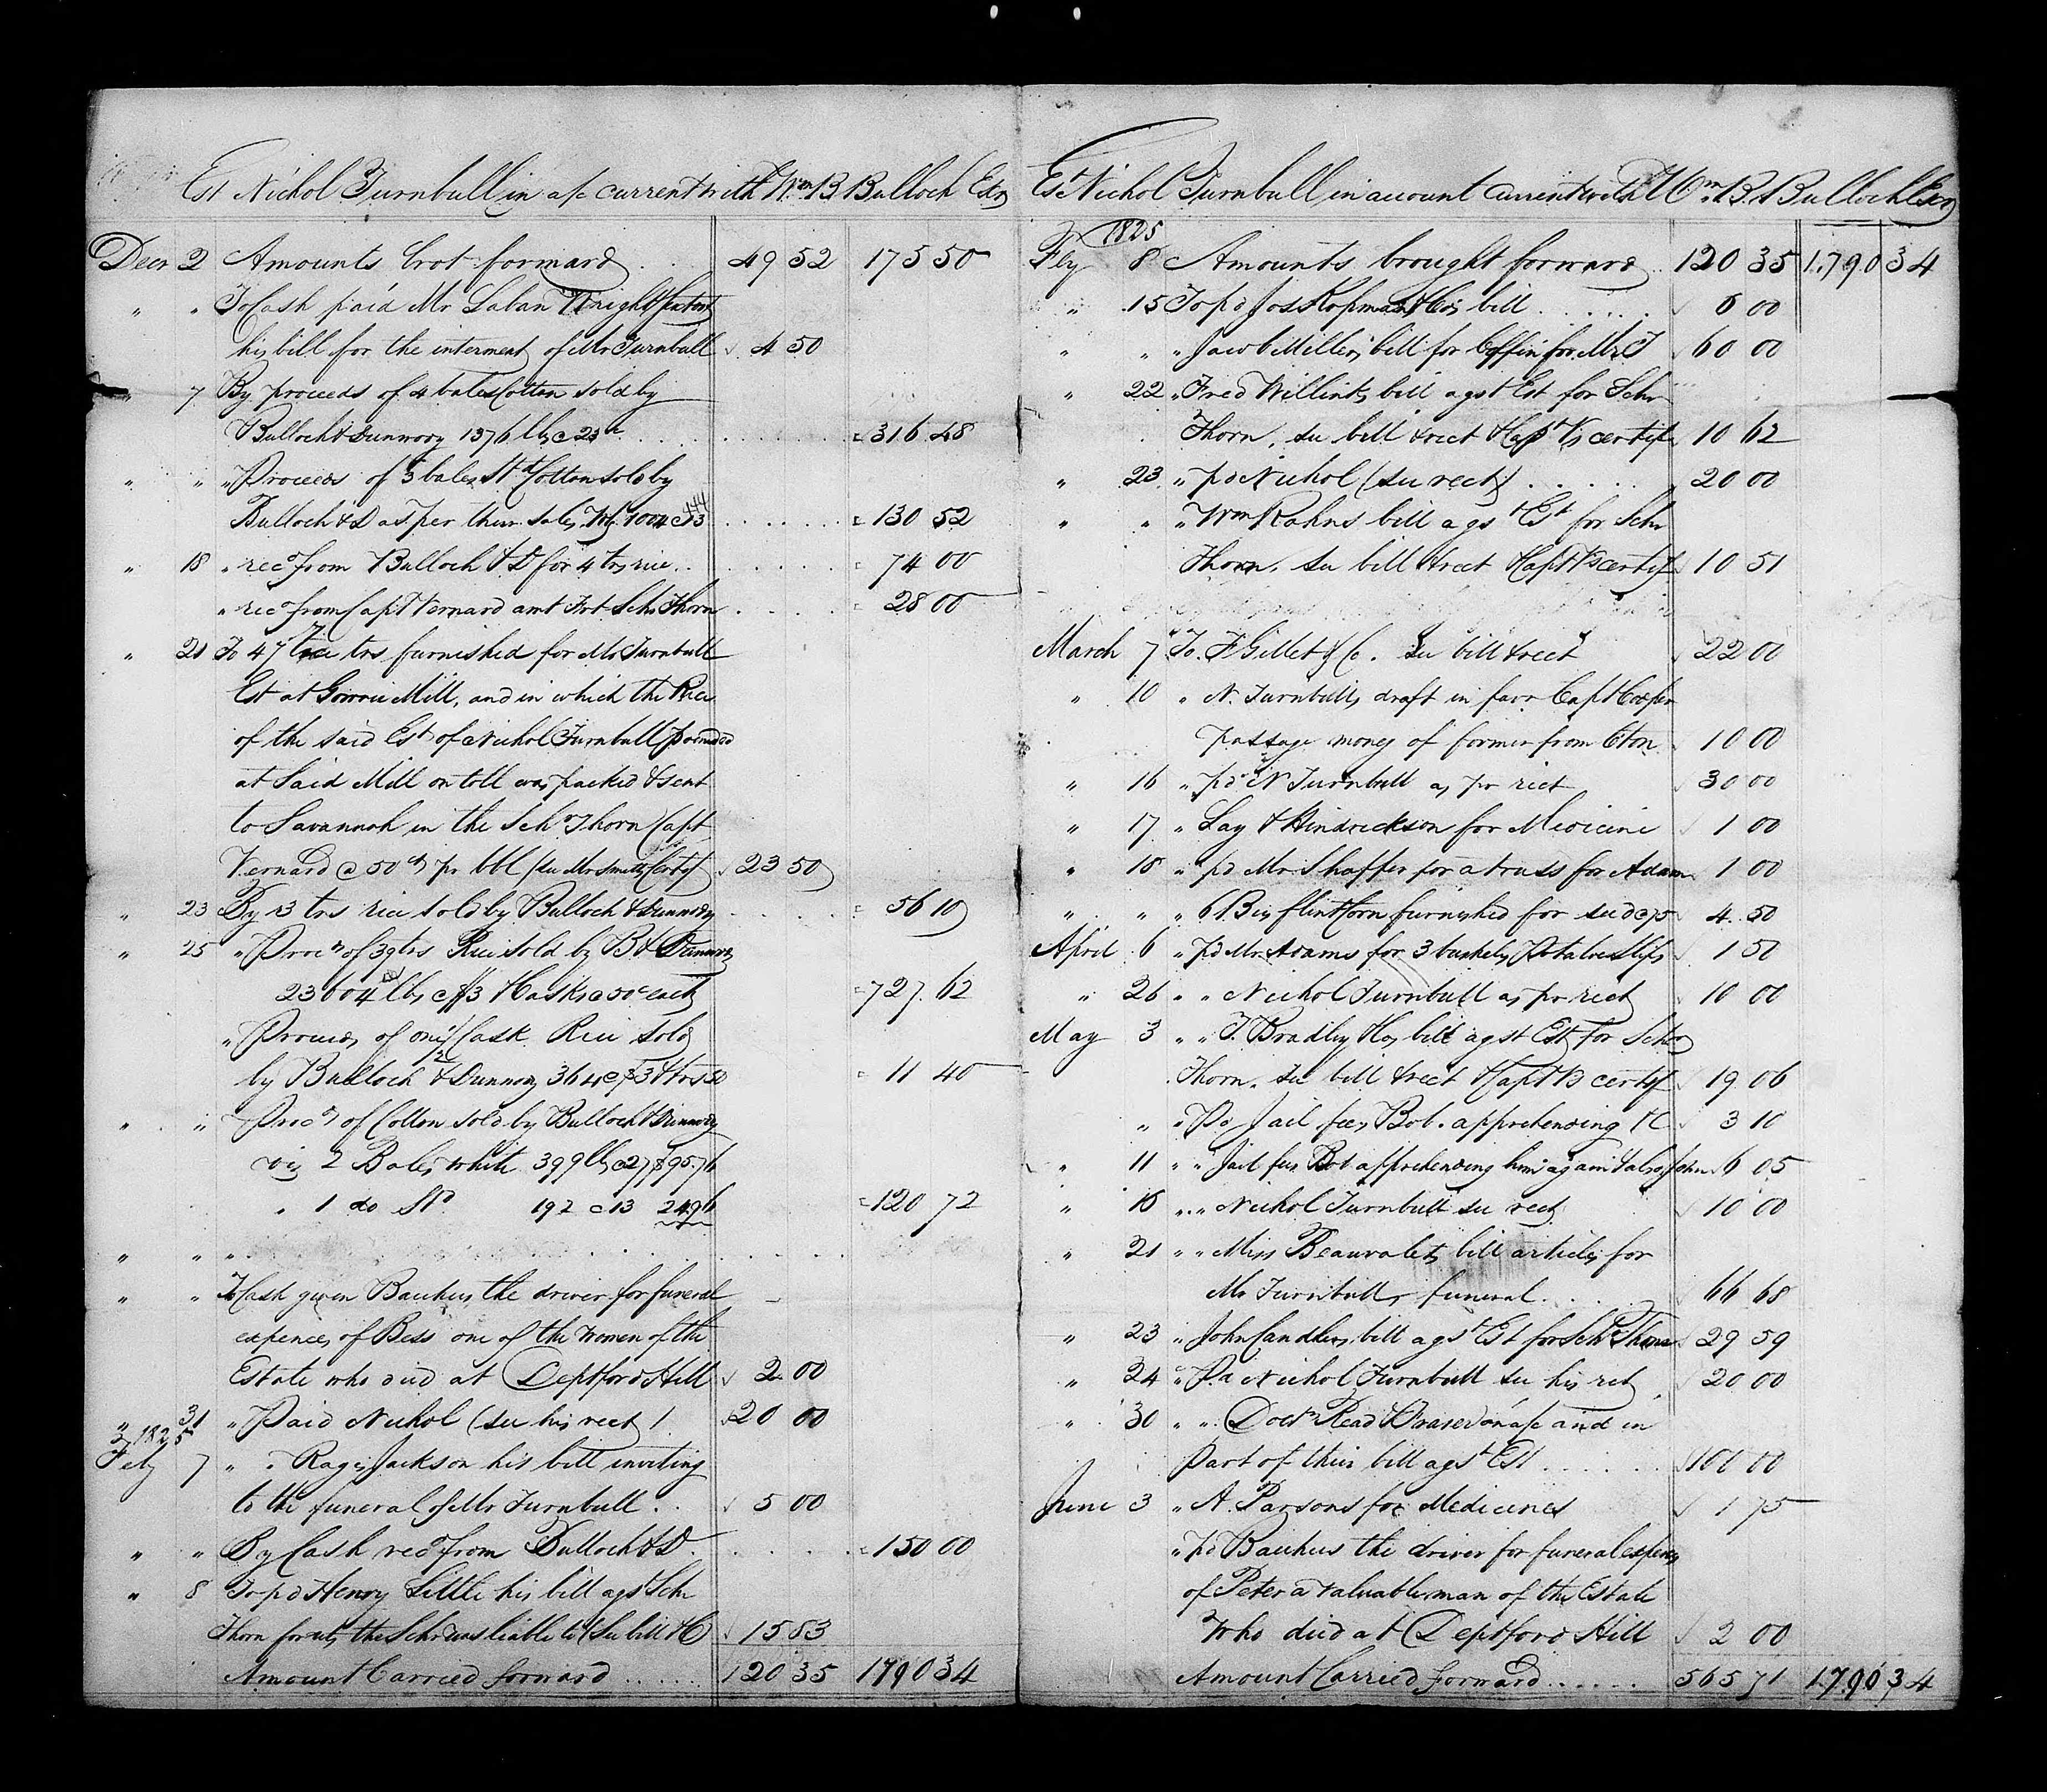 Est Nichol Turnbull in a/c current with Wm B Bulloch Exr
Decr 2 Amounts brot forward . . 49 52 175 50
" " To Cash paid Mr Laban Wright
his bill for the interment of Mr Turnbull 4 50
" 7 By proceeds of 4 bales Cotton sold by
Bulloch & Dunwody 1376 lbs @ 23 . . . . 316 48
" " " Proceeds of 3 bales Std Cotton sold by
Bulloch & D as per their sales Wg. 1004 @ 13 . . . . 130 52
" 18 " recd from Bulloch & D for 4 trs rice . . . . 74 00
" recd from Capt Vernard amt Frt Schr Thorn . . . . 28 00
" 21 To 47 trs furnished for Mr Turnbull
Est at Gowrie Mill, and in which the Rice
of the said Est of Nichol Turnbull pounded
at Said Mill on toll was packed & sent
to Savannah in the Schr Thorn Capt
Vernard @ 50 cts pr bbl (see Mr Smiths Certif 23 50
" 23 By 3 trs rice sold by Bulloch & Dunwody . . . . 56 10
" 25 " Proc'ds of 39 trs Rice sold by B & Dunwody
23004 lbs @ $3 & Casks @ 50c each 727. 62
" Proceeds of one Cask Rice sold
by Bulloch & Dunwody 364 @ $3 & trs 50 11 40
" " Proc'ds of Cotton sold by Bulloch & Dunwody
viz 2 Bales white 399 lbs @ 27 $95.76
" 1 do Sd 192 @ 13 24.96 120 72
" " " . . . .
" " To Cash given Bacchus the driver for funeral
expences of Bess one of the Women of the
Estate who died at Deptford Hill 2 00
" 31 " Paid Nichol (see his rect) 20 00
1825
Feby 7 " " Jackson his bill inviting
to the funeral of Mr Turnbull . . 5 00
" " By Cash recd from Bulloch & D . . . . 150 00
" 8 To pd Henry Little his bill agst Schr
Thorn for wh the Schr was liable to (See bill &C 15 83
Amount Carried forward . . . . 120 35 1790 34
Est Nichol Turnbull in account Current with Wm B. Bulloch Exr
1825
Feby 8 Amounts brought forward . . 120 35 1.790 34
" 15 To pd Jos Kopman & Cos bill . . . . 6 00
" " " Jacob Millers bill for Coffin for Mr T 60 00
" 22 " Fred Willinks bill agst Est for Schr
Thorn, see bill & rect & Capt Vs certif 10 62
" 23 " pd Nichol (see rect) . . . . 20 00
" " " Wm Rahns bill agst Est for Schr
Thorn, see bill & rect & Capt Vs certif 10 51
March 7 To. F Gillet & Co. See bill & rect 22 00
" 10 " N. Turnbulls draft in favr Capt Cooper
passage money of former from Cton 10 00
" 16 " pd N Turnbull as pr rect 30 00
" 17 " Lay & Hindrickson for Medicine 1 00
" 18 " pd Mr Shaffer for a truss for Adam 1 00
" " " 6 Bus flint Corn furnished for seed @ 75 4. 50
April 6 " pd Mr Adams for 3 bushels Potatoe Slips 1 50
" 26 " " Nichol Turnbull as pr rect 10 00
May 3 " " T. Bradley & Cos bill agst Est for Schr
Thorn. see bill & rect & Capt Vs certif 19 06
" " Pd Jail fees Bob. apprehending &C 3 10
" 11 " " Jail fees Bob apprehending him again & also John 6 05
" 16 " " Nichol Turnbull see rect 10 00
" 21 " " Miss Beauvalets bill articles for
Mr Turnbulls funeral . . . . 66 68
" 23 " John Candlers bill agst Est for Schr Thorn 29 59
" 24 " Pd Nichol Turnbull see his rect 20 00
" 30 " " Doctrs Read & Fraser on a/c and in
part of their bill agst Est . . . . 100 00
June 3 " A. Parsons for Medicines 1 75
" pd Bacchus the driver for funeral expences
of Peter a valuable man of the Estate
Who died at Deptford Hill 2 00
Amount Carried forward . . . . 565 71 1.790 34